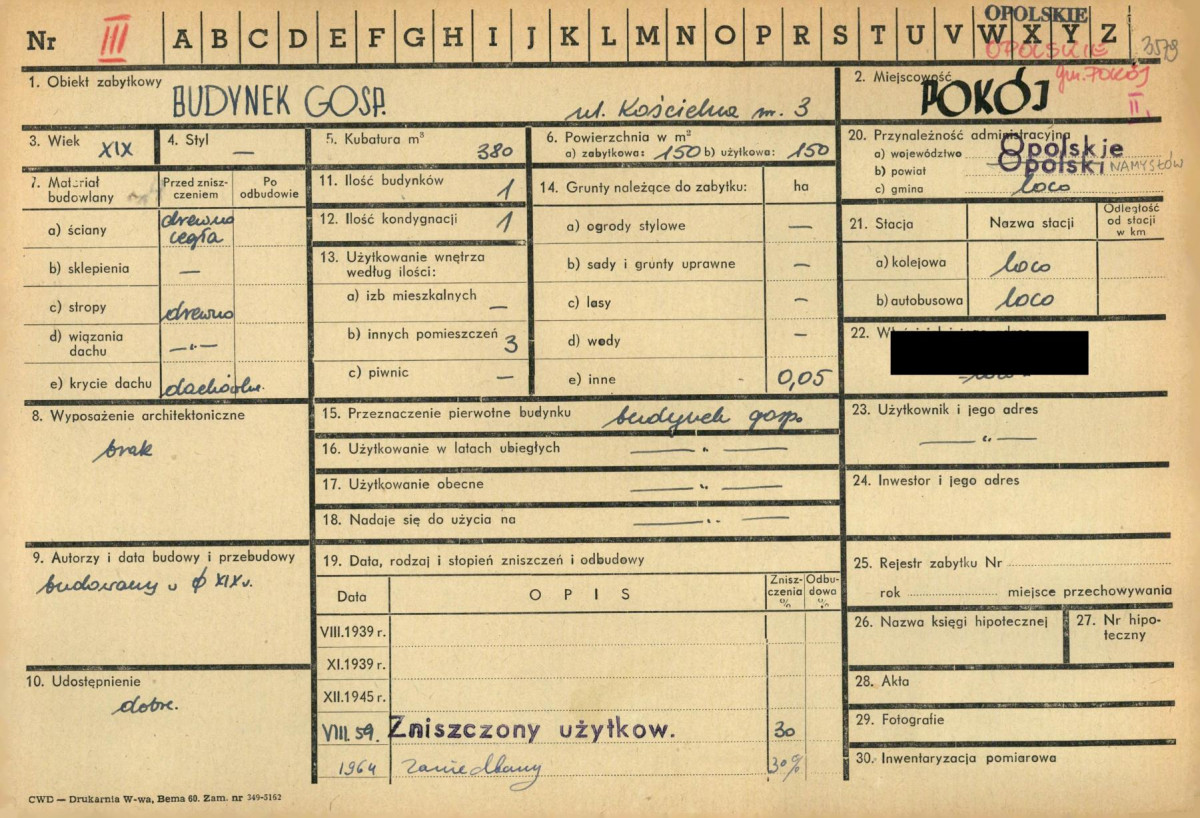 Nr III A B C D E F G H I J K L M N O P R S T U V W X Y Z
OPOLSKIE
OPOLSKIE
gm. POKÓJ
II.
3579
1. Obiekt zabytkowy
BUDYNEK GOSP. ul. Kościelna nr. 3
2. Miejscowość
POKÓJ
3. Wiek XIX
4. Styl —
5. Kubatura m³ 380
6. Powierzchnia w m²
a) zabytkowa: 150 b) użytkowa: 150
7. Materiał budowlany
Przed zniszczeniem
Po odbudowie
a) ściany drewno cegła
b) sklepienia —
c) stropy drewno
d) wiązania dachu —„—
e) krycie dachu
8. Wyposażenie architektoniczne
brak
9. Autorzy i data budowy i przebudowy
budowany
XIX w.
10. Udostępnienie
dobre.
11. Ilość budynków 1
12. Ilość kondygnacji 1
13. Użytkowanie wnętrza
według ilości:
a) izb mieszkalnych —
b) innych pomieszczeń 3
c) piwnic —
14. Grunty należące do zabytku: ha
a) ogrody stylowe —
b) sady i grunty uprawne —
c) lasy —
d) wody —
e) inne 0,05
15. Przeznaczenie pierwotne budynku budynek gosp.
16. Użytkowanie w latach ubiegłych —„—
17. Użytkowanie obecne —„—
18. Nadaje się do użycia na —„—
19. Data, rodzaj i stopień zniszczeń i odbudowy
Data
OPIS
Zniszczenia %
Odbudowa %
VIII.1939 r.
XI.1939 r.
XII.1945 r.
VIII.59. Zniszczony użytkow. 30
1964 zaniedbany 30%
20. Przynależność administracyjna
a) województwo Opolskie
b) powiat Opolski NAMYSŁÓW
c) gmina loco
21. Stacja
Nazwa stacji
Odległość od stacji w km
a) kolejowa loco
b) autobusowa loco
22.
23. Użytkownik i jego adres
—„—
24. Inwestor i jego adres
25. Rejestr zabytku Nr
rok miejsce przechowywania
26. Nazwa księgi hipotecznej
27. Nr hipoteczny
28. Akta
29. Fotografie
30. Inwentaryzacja pomiarowa
CWD — Drukarnia W-wa, Bema 60. Zam. nr 349-5162